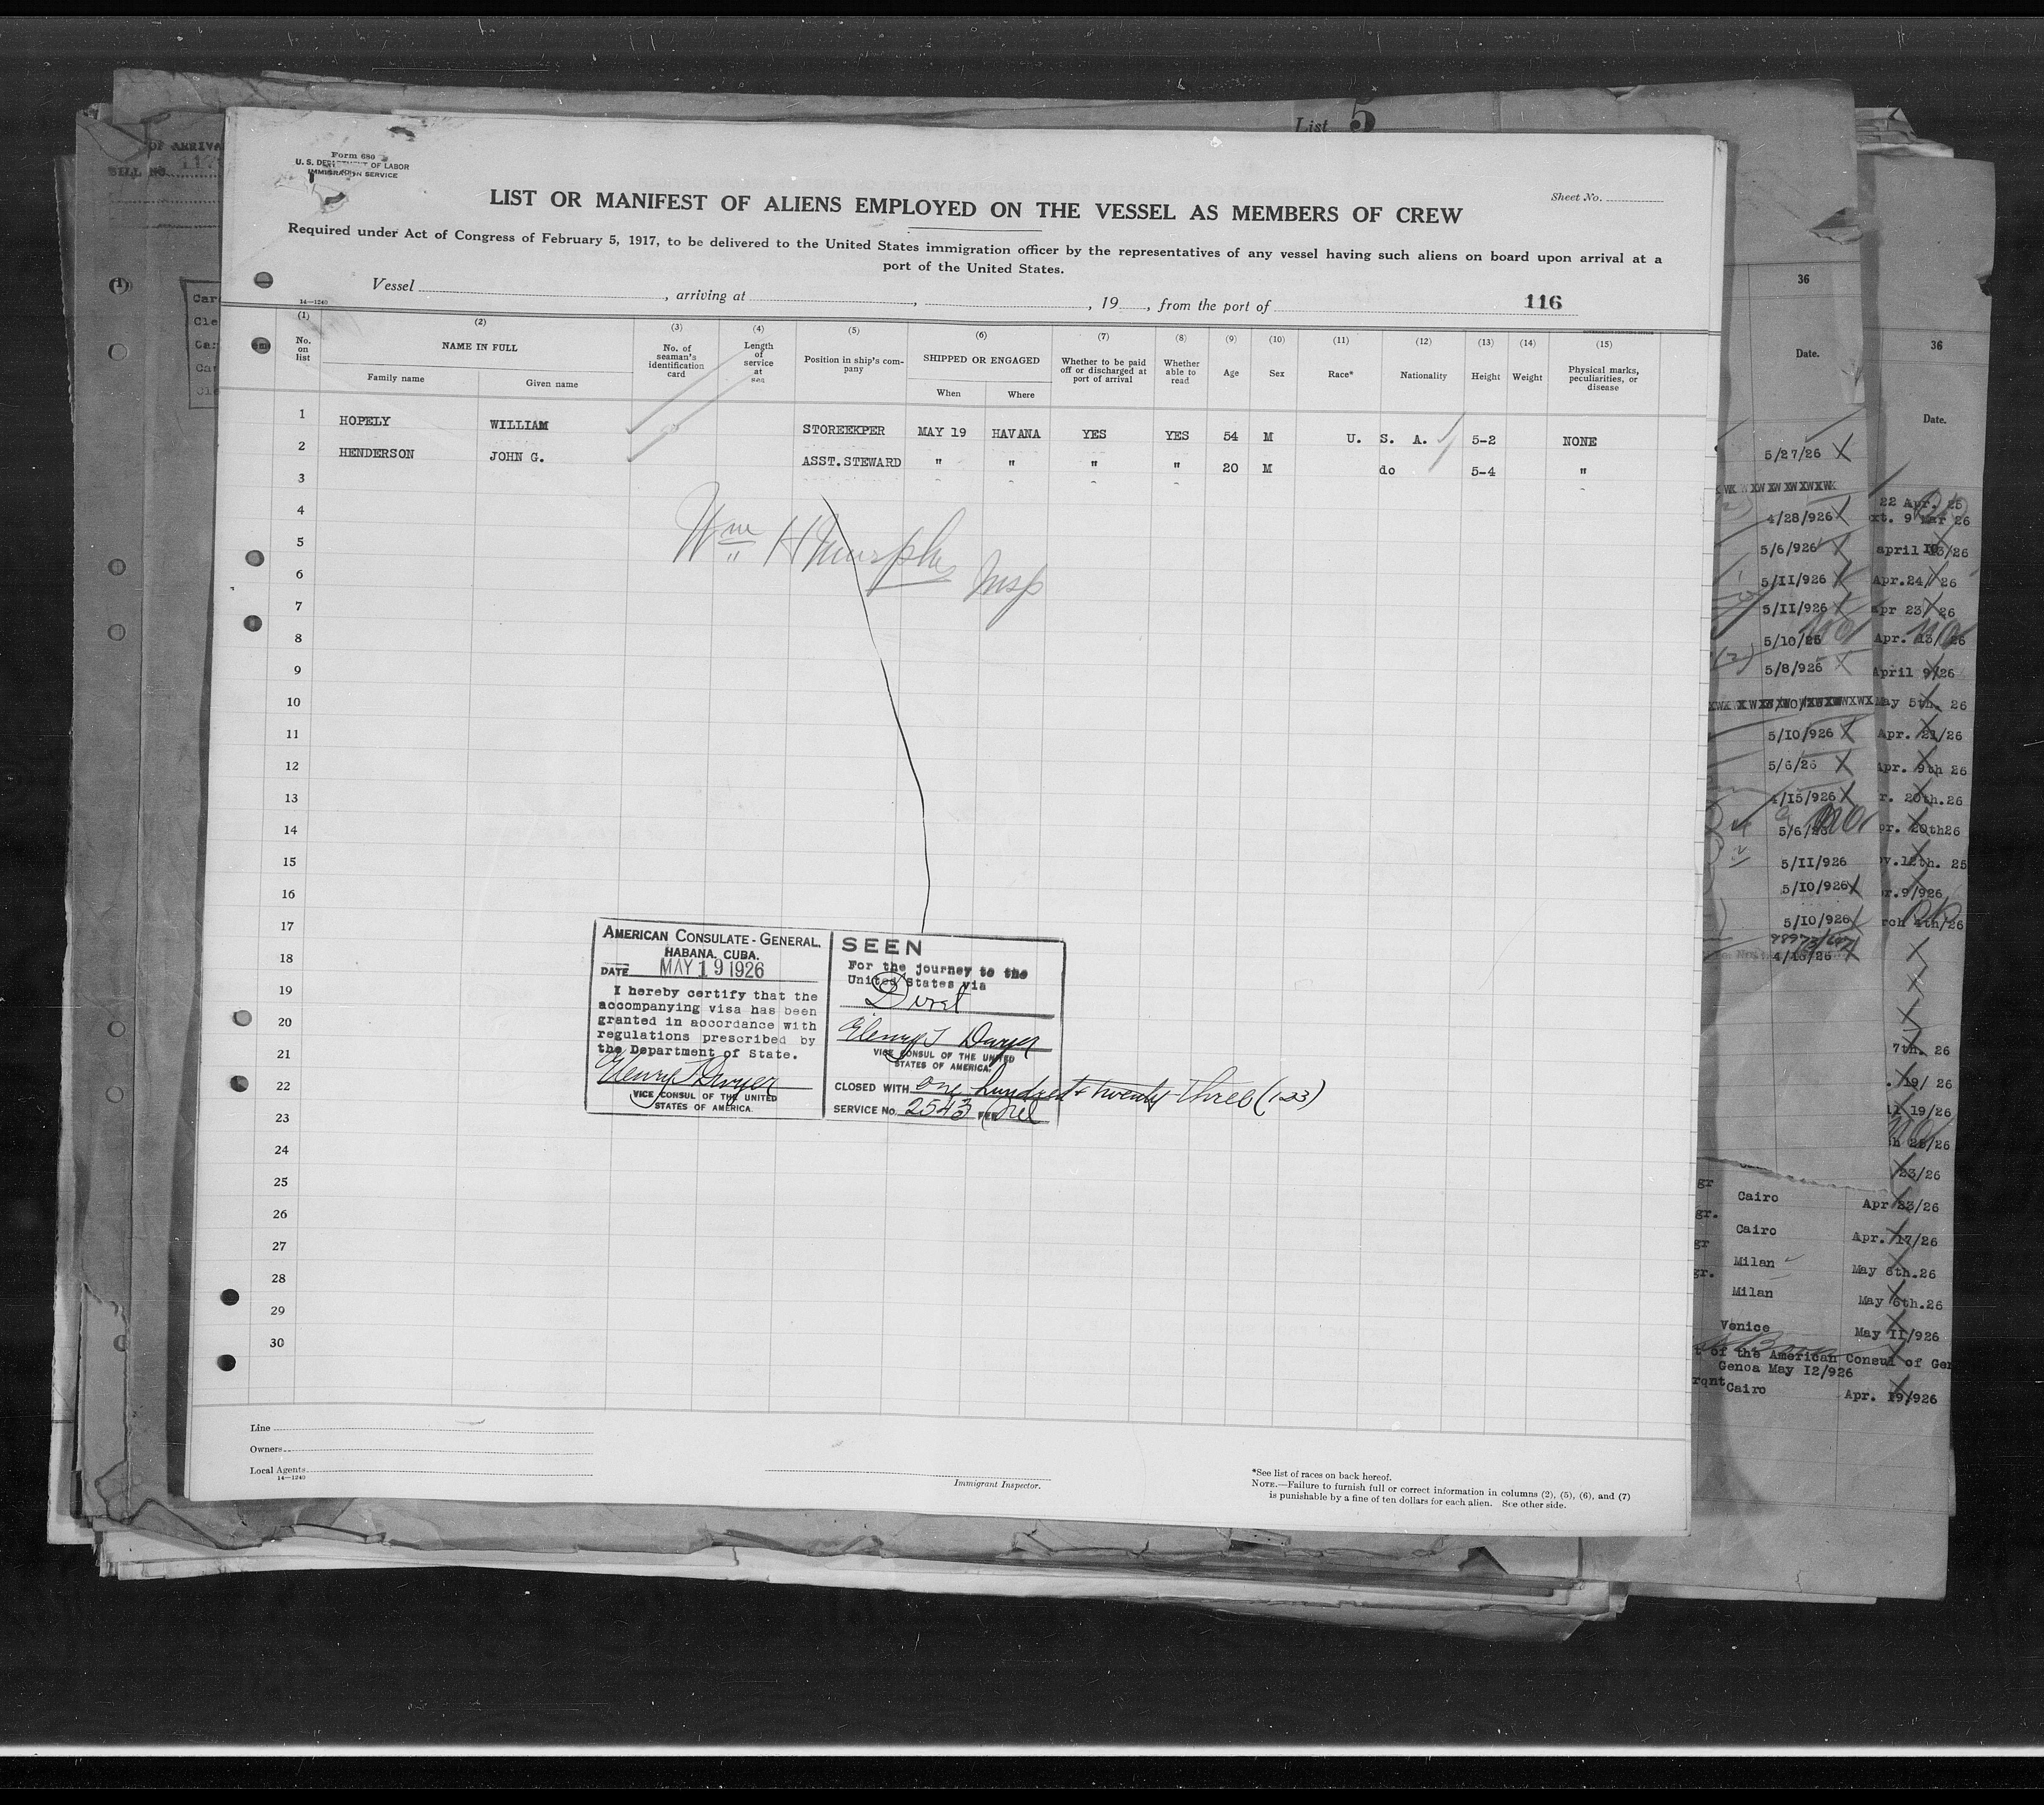 List 5
OF ARRIVA
BILL NO.
Form 680
U. S. DEPARTMENT OF LABOR
IMMIGRATION SERVICE
Sheet No.
LIST OR MANIFEST OF ALIENS EMPLOYED ON THE VESSEL AS MEMBERS OF CREW
Required under Act of Congress of February 5, 1917, to be delivered to the United States immigration officer by the representatives of any vessel having such aliens on board upon arrival at a
port of the United States.
Vessel , arriving at , , 19 , from the port of 116
14—1240
(1) (2) (3) (4) (5) (6) (7) (8) (9) (10) (11) (12) (13) (14) (15)
No. on list NAME IN FULL Family name Given name No. of seaman's identification card Length of service at sea Position in ship's company SHIPPED OR ENGAGED When Where Whether to be paid off or discharged at port of arrival Whether able to read Age Sex Race* Nationality Height Weight Physical marks, peculiarities, or disease
1 HOPELY WILLIAM STOREEKPER MAY 19 HAVANA YES YES 54 M U. S. A. 5-2 NONE
2 HENDERSON JOHN G. ASST.STEWARD " " " " 20 M do 5-4 "
3
4
5
Wm H Murphy Insp
6
7
8
9
10
11
12
13
14
15
16
17
18
19
20
21
22
23
24
25
26
27
28
29
30
AMERICAN CONSULATE-GENERAL,
HABANA, CUBA.
DATE MAY 19 1926
I hereby certify that the
accompanying visa has been
granted in accordance with
regulations prescribed by
the Department of State.
Henry T Dwyer
VICE CONSUL OF THE UNITED
STATES OF AMERICA.
SEEN
For the journey to the
United States via
Direct
Henry T Dwyer
VICE CONSUL OF THE UNITED
STATES OF AMERICA.
CLOSED WITH one hundred & twenty three (123)
SERVICE No. 2543 FEE
Line
Owners
Local Agents
14—1240
Immigrant Inspector.
*See list of races on back hereof.
NOTE.—Failure to furnish full or correct information in columns (2), (5), (6), and (7)
is punishable by a fine of ten dollars for each alien. See other side.
36
Date.
5/27/26
4/28/926
5/6/926
5/11/926
5/11/926
5/10/26
5/8/926
5/10/926
5/6/26
4/15/926
5/6/26
5/11/926
5/10/926
5/10/926
4/16/26
Cairo
Cairo
Milan
Milan
Venice
t of the American Consul of Gen
Genoa May 12/926
Cairo
36
Date.
22 Apr. 25
xt. 9 Mar 26
april 13/26
Apr.24/26
apr 23/26
Apr. 13/26
April 9/26
May 5th. 26
Apr. 21/26
Apr. 9th 26
r. 20th.26
pr. 20th26
ov.12th. 25
pr.9/926
rch 4th/26
7th. 26
19/ 26
il 19/26
h 25/26
23/26
Apr 23/26
Apr. 17/26
May 6th.26
May 6th.26
May 11/926
Apr. 19/926